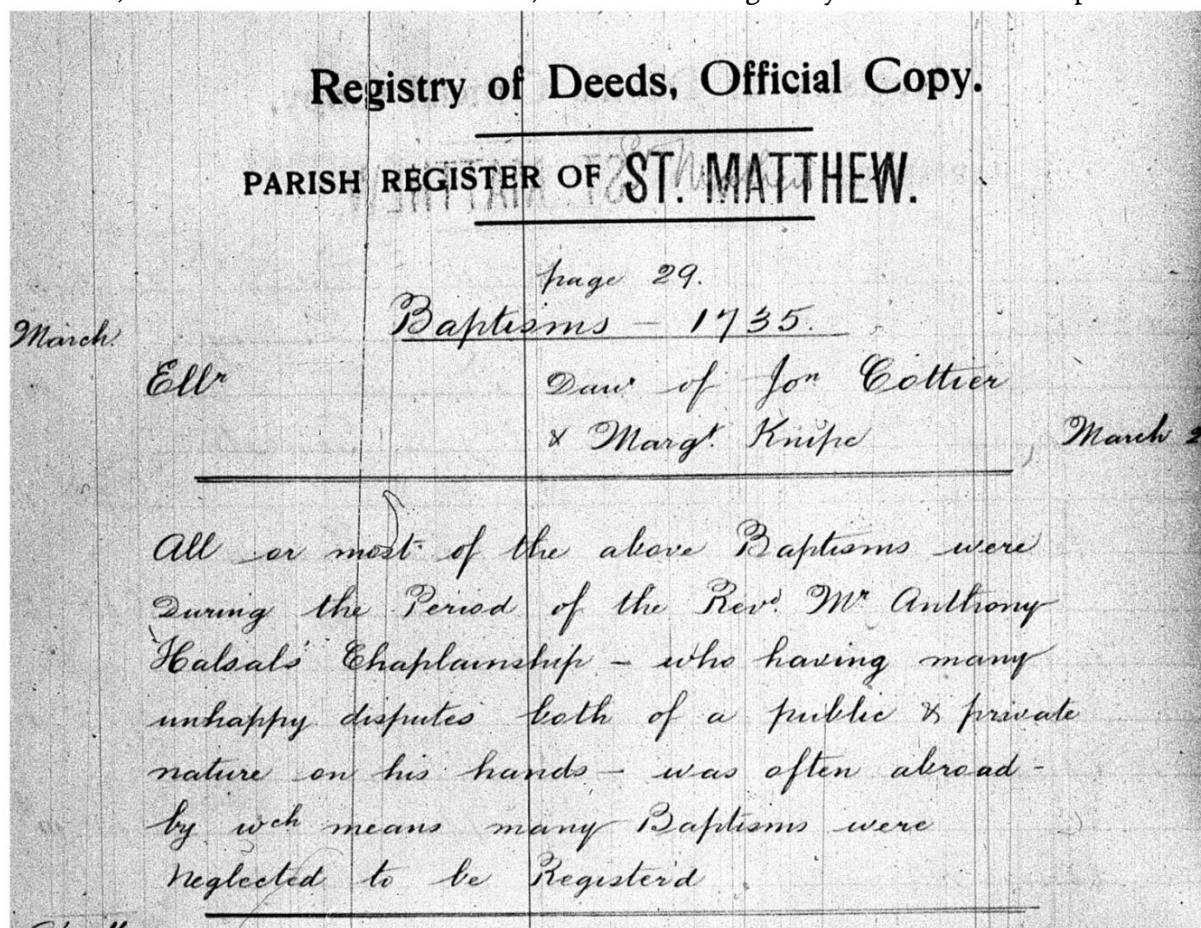 Registry of Deeds, Official Copy.
PARISH REGISTER OF ST. MATTHEW.
page 29.
Baptisms - 1735.
March.
Ellr Daur of Jon Cottier
& Margt. Knipe March
All or most of the above Baptisms were
During the Period of the Revd. Mr Anthony
Halsals Chaplainship - who having many
unhappy disputes both of a public & private
nature on his hands - was often abroad -
by wch means many Baptisms were
Neglected to be Register'd